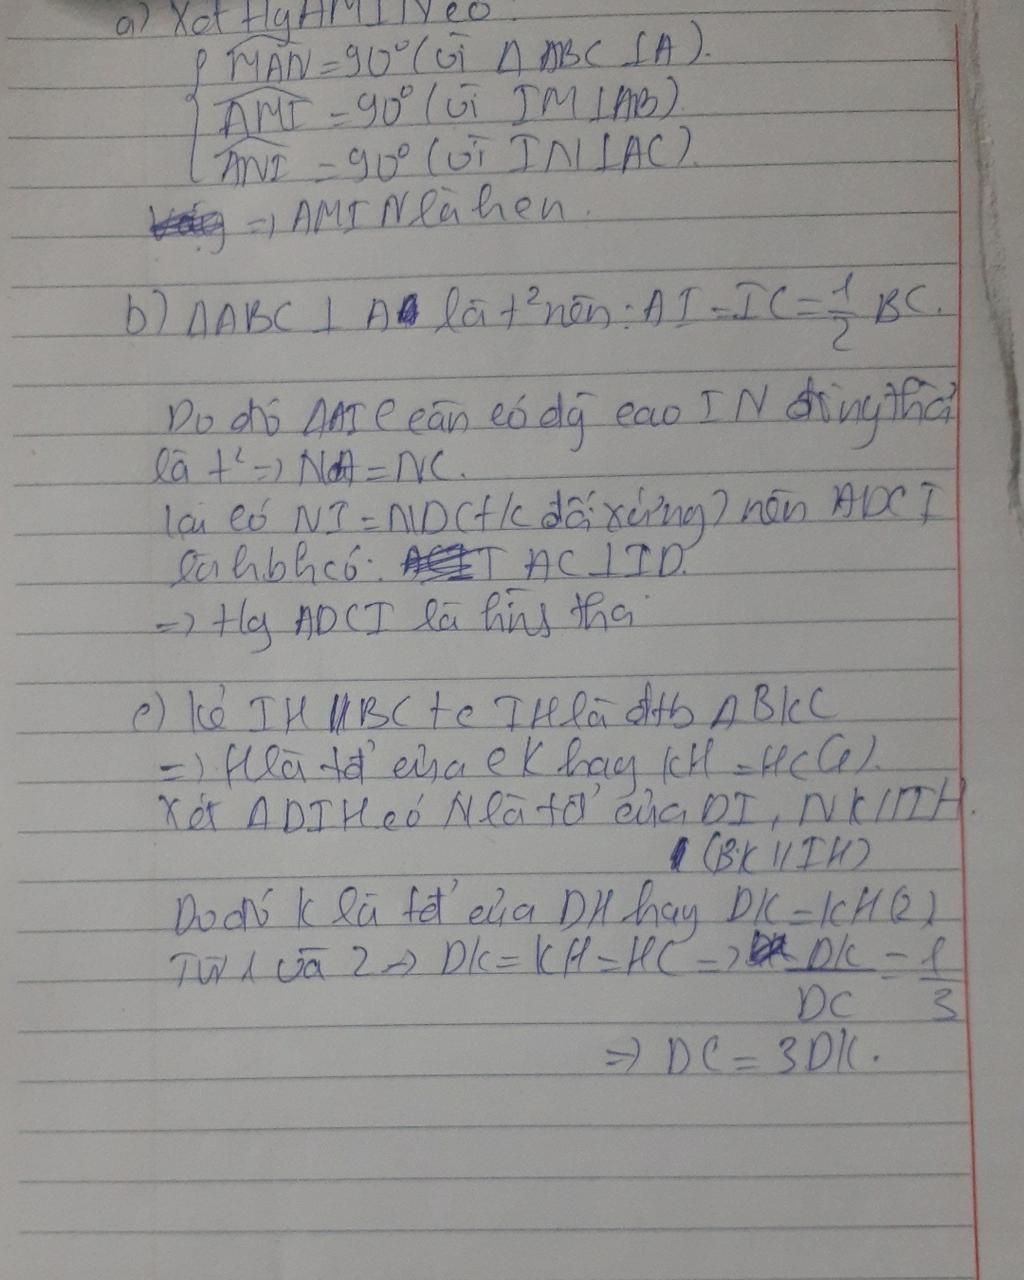 a) Xét tg AMIN có:
MAN = 90° (vì Δ ABC ⊥ A).
AMI = 90° (vì IM ⊥ AB).
ANI = 90° (vì IN ⊥ AC).
=> AMIN là hcn.
b) ΔABC ⊥ A là t² nên: AI = IC = 1/2 BC.
Do đó ΔAIC cân có đg cao IN đồng thời
là t² => NA = NC.
lại có NI = ND (t/c đối xứng) nên ADCI
là hbh có: AC ⊥ ID.
=> tg ADCI là hình thoi
c) kẻ IH // BC ta IH là đtb Δ BKC
=> H là tđ' của CK hay KH = HC (1).
Xét Δ DIH có N là tđ' của DI, NK // IH.
(BK // IH)
Do đó K là tđ' của DH hay DK = KH (2)
Từ 1 và 2 => DK = KH = HC => DK/DC = 1/3
=> DC = 3DK.